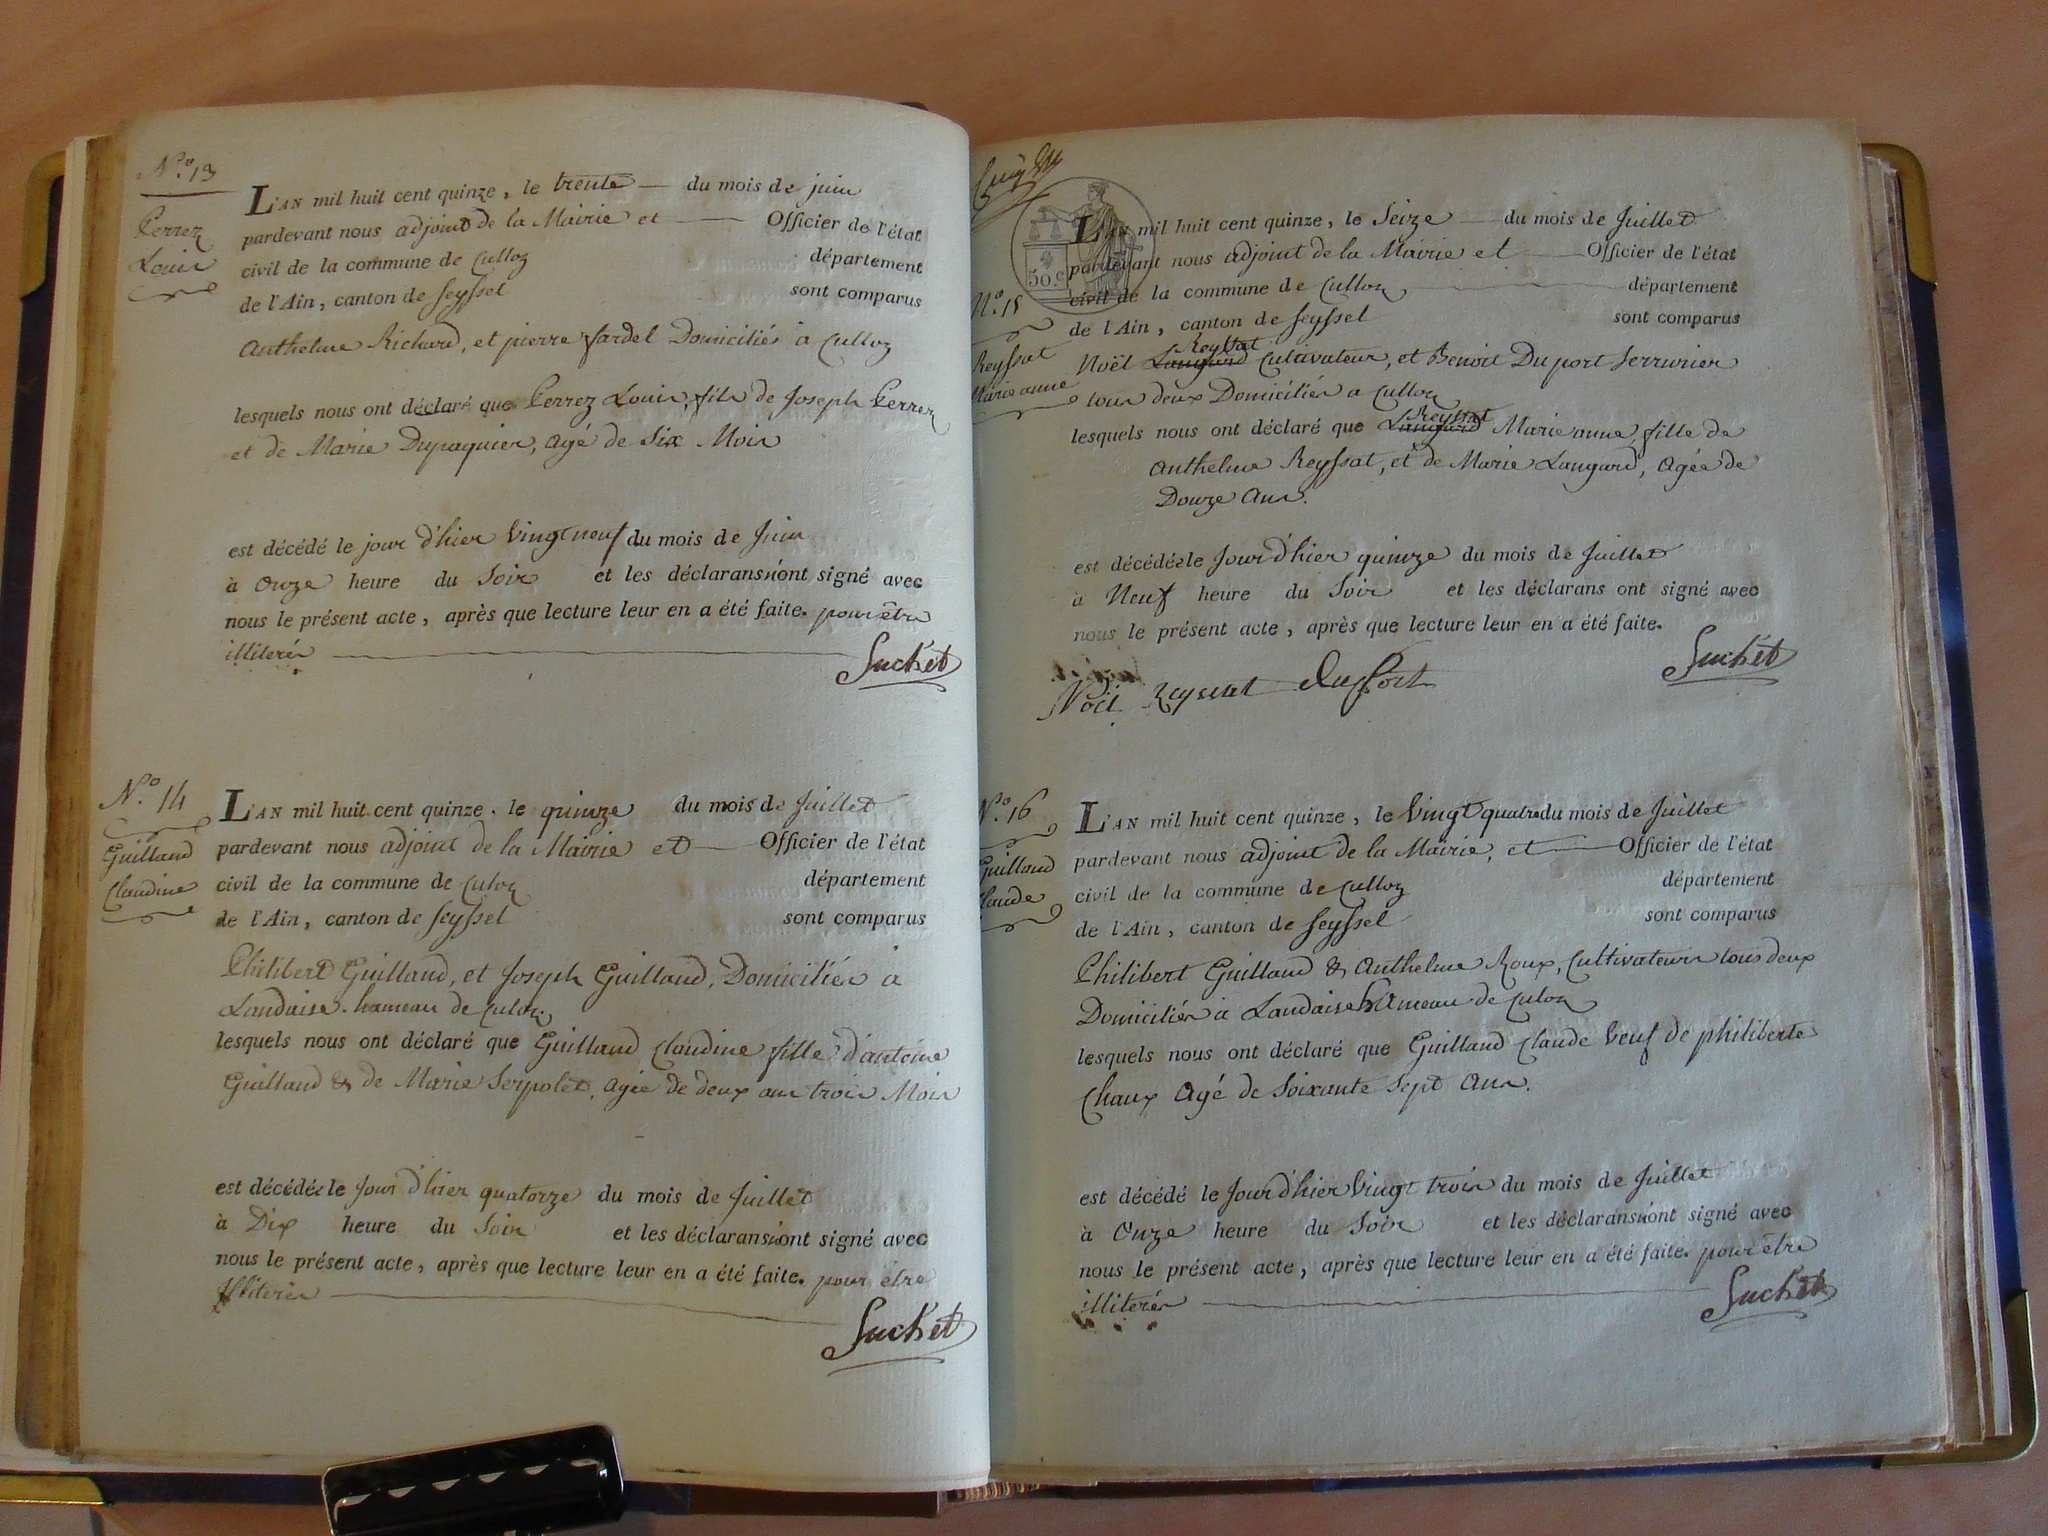 N.º 13
Perrez
Louis
L'AN mil huit cent quinze, le trente du mois de juin
pardevant nous adjoint de la Mairie et Officier de l'état
civil de la commune de Culloz département
de l'Ain, canton de Seyssel sont comparus
Anthelme Richard, et pierre fardel Domiciliés à Culloz
lesquels nous ont déclaré que Perrez Louis, fils de Joseph Perrez
et de Marie Dupaquier, agé de Six Mois
est décédé le jour d'hier Vingt neuf du mois de Juin
à Onze heure du Soir et les déclarans n'ont signé avec
nous le présent acte, après que lecture leur en a été faite. pour être
illiterés
Suchet
N.º 14
Guilland
Claudine
L'AN mil huit cent quinze, le quinze du mois de Juillet
pardevant nous adjoint de la Mairie et Officier de l'état
civil de la commune de Culoz département
de l'Ain, canton de Seyssel sont comparus
Philibert Guilland, et Joseph Guilland, Domiciliés à
Landaise hameau de Culoz.
lesquels nous ont déclaré que Guilland Claudine fille d'antoine
Guilland & de Marie Serpolet, agée de deux ans trois Mois
est décédée le Jour d'hier quatorze du mois de Juillet
à Dix heure du Soir et les déclarans n'ont signé avec
nous le présent acte, après que lecture leur en a été faite. pour être
Illiterés
Suchet
50.c
N.º 15
Reyssat
Marie anne
L'AN mil huit cent quinze, le Seize du mois de Juillet
pardevant nous adjoint de la Mairie et Officier de l'état
civil de la commune de Culloz département
de l'Ain, canton de Seyssel sont comparus
Reyssat
Noël Langard Cultivateur, et Benoit Duport Serrurier
tous deux Domiciliés a Culloz
Reyssat
lesquels nous ont déclaré que Langard Marie anne, fille de
Anthelme Reyssat, et de Marie Langard, Agée de
Douze Ans.
est décédée le Jour d'hier quinze du mois de Juillet
à Neuf heure du Soir et les déclarans ont signé avec
nous le présent acte, après que lecture leur en a été faite.
Suchet
Noël Reyssat Duport
N.º 16
Guilland
Claude
L'AN mil huit cent quinze, le Vingt quatre du mois de Juillet
pardevant nous adjoint de la Mairie, et Officier de l'état
civil de la commune de Culloz département
de l'Ain, canton de Seyssel sont comparus
Philibert Guilland & Anthelme Roux, Cultivateurs tous deux
Domiciliés à Landaise hameau de Culoz
lesquels nous ont déclaré que Guilland Claude Veuf de philiberte
Chaux Agé de Soixante Sept Ans.
est décédé le Jour d'hier Vingt trois du mois de Juillet
à Onze heure du Soir et les déclarans n'ont signé avec
nous le présent acte, après que lecture leur en a été faite. pour être
illiterés
Suchet